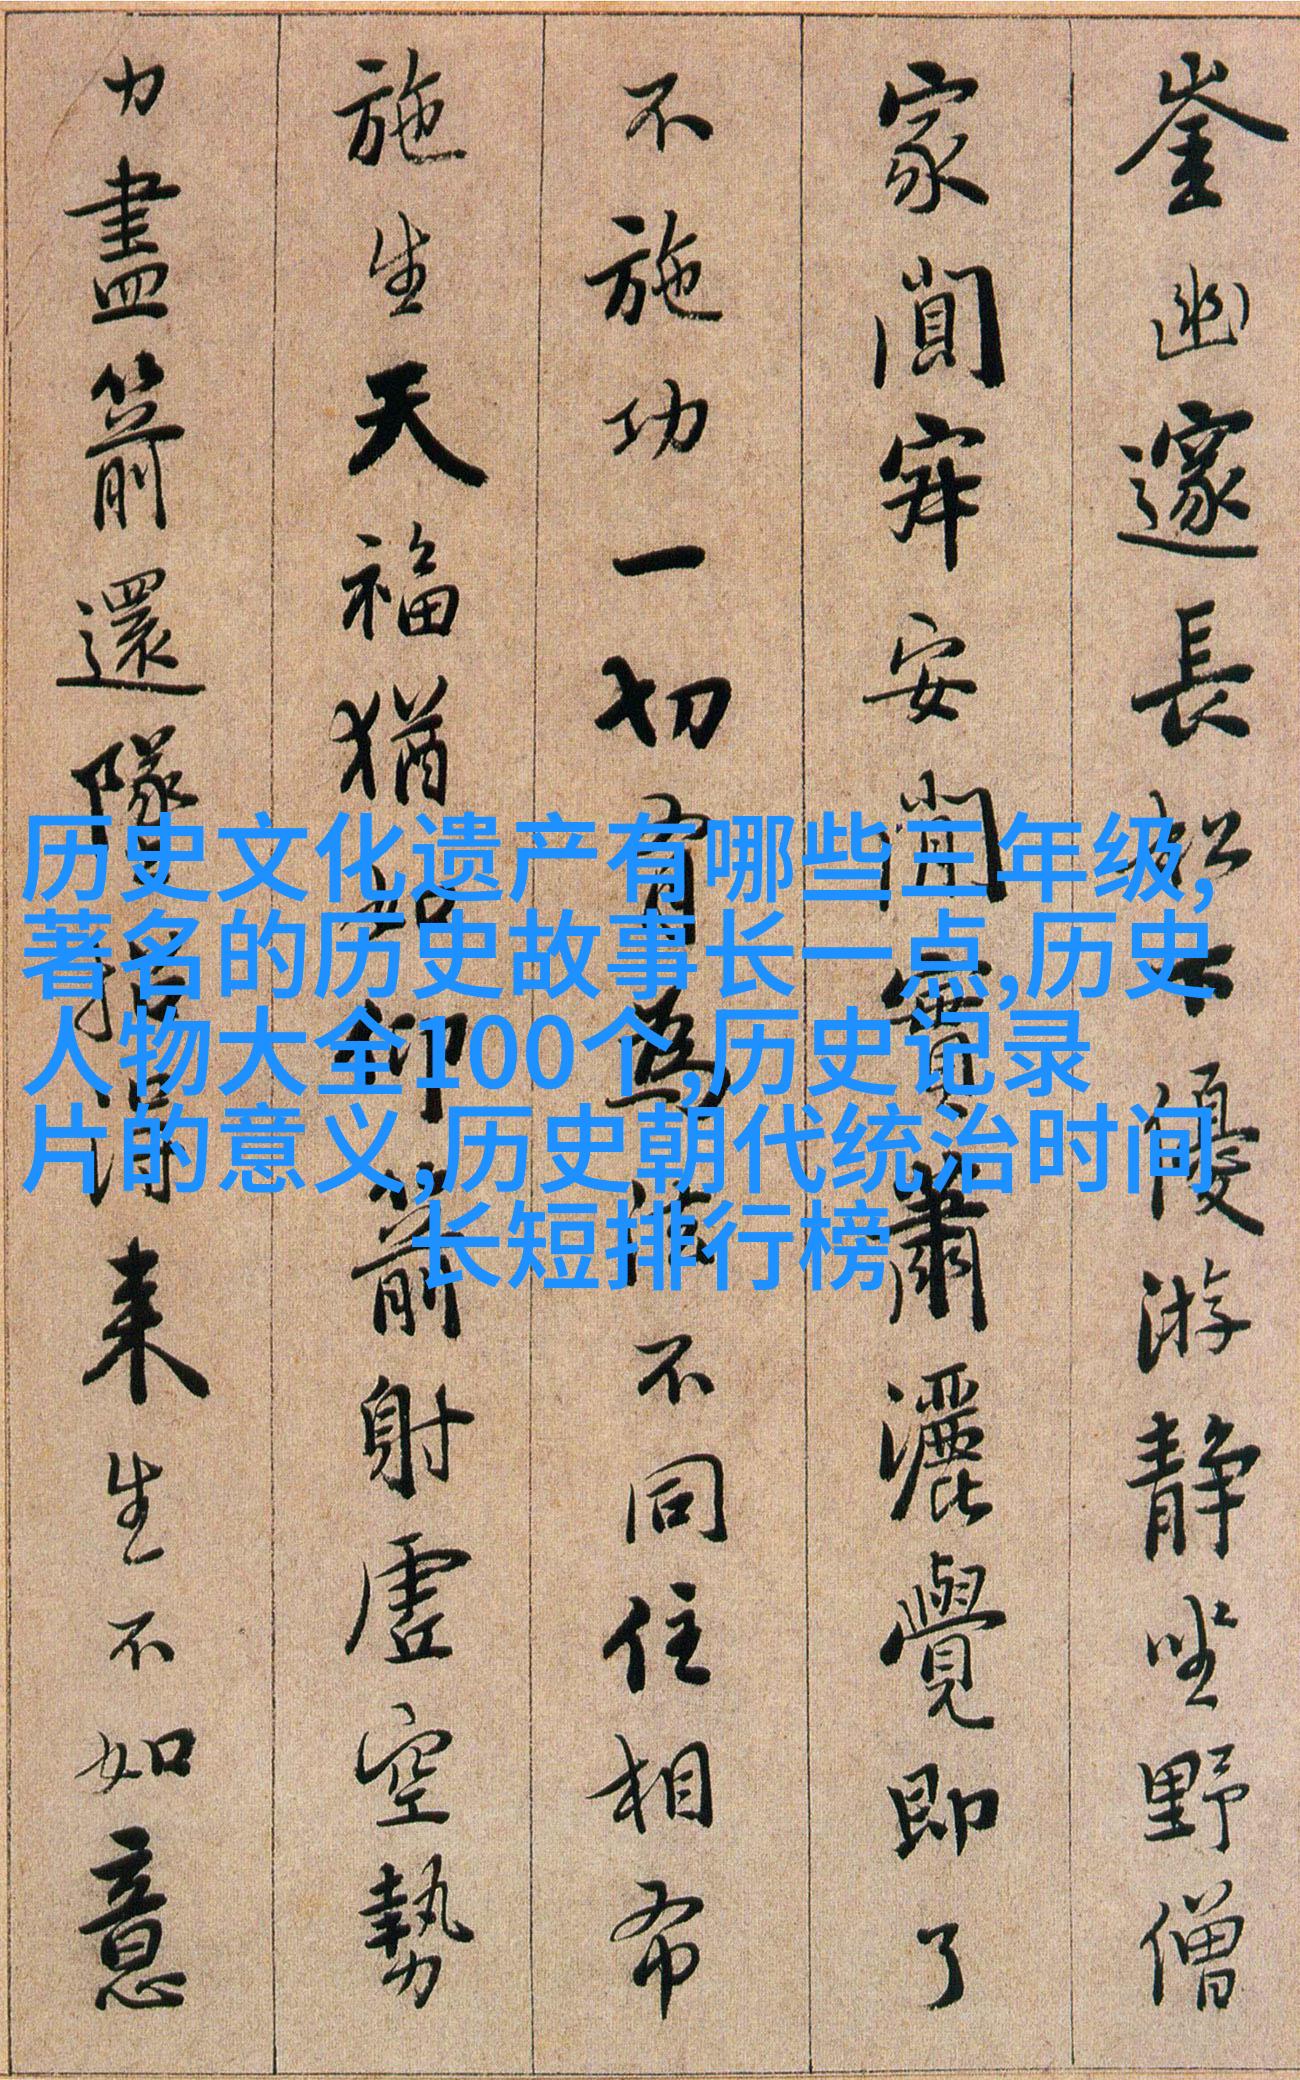 崟幽邃長松下優游靜坐野僧
家闃寂安閑實蕭灑覺即了
不施功一切有為法不同住相布
施生天福猶如仰箭射虛空勢
力盡箭還墜招得来生不如意
历史文化遗产有哪些三年级,
著名的历史故事长一点,历史
人物大全100个,历史记录
片的意义,历史朝代统治时间
长短排行榜